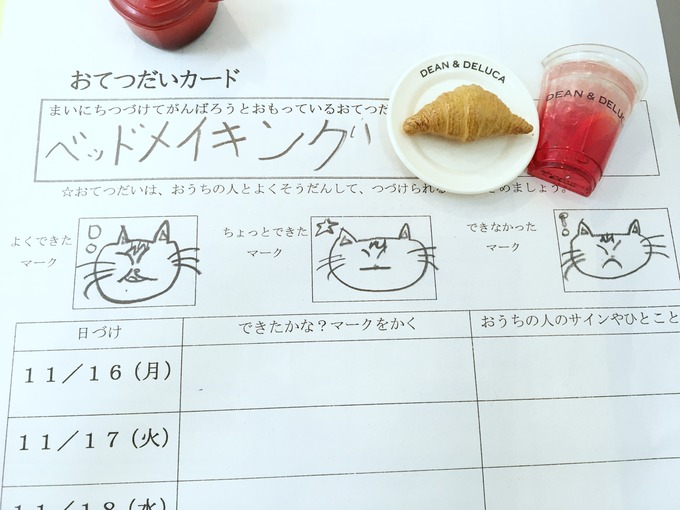 おてつだいカード
まいにちつづけてがんばろうとおもっているおてつだ
ベッドメイキング
DEAN & DELUCA
DEAN & DELUCA
☆おてつだいは、おうちの人とよくそうだんして、つづけられる
めましょう。
よくできた
マーク
ちょっとできた
マーク
できなかった
マーク
日づけ
できたかな？マークをかく
おうちの人のサインやひとこと
11／16（月）
11／17（火）
11／18（水）